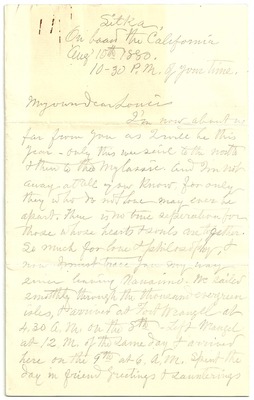 Sitka,
On board the California
Aug 10th 1880.
10-30 P.M. of your time.
My own dear Louie
I'm now about as
far from you as I will be this
year - only this wee sail to the north
& then to thee My lassie. And I'm not
away at all you know, for only
they who do not love may ever be
apart. there is no true separation for
those whose hearts & souls are together.
So much for love & philosophy, &
now I must trace you my way
since leaving Nanaimo. We sailed
smoothly through the thousand evergreen
isles, & arrived at Fort Wrangel at
4.30 A.M. on the 8th - Left Wrangel
at 12 M. of the same day & arrived
here on the 9th at 6 A.M. Spent the
day in friend greetings & saunterings